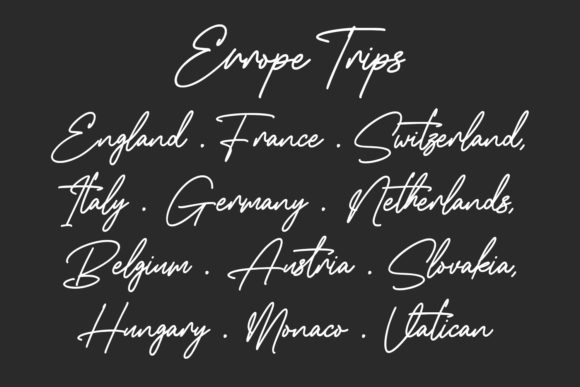 Europe Trips
England . France . Switzerland,
Italy . Germany . Netherlands,
Belgium . Austria . Slovakia,
Hungary . Monaco . Vatican